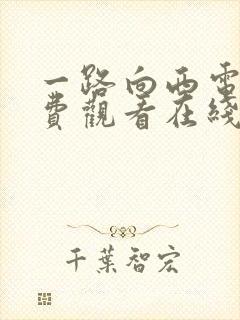 一路向西電
費觀看在綫
千葉智宏